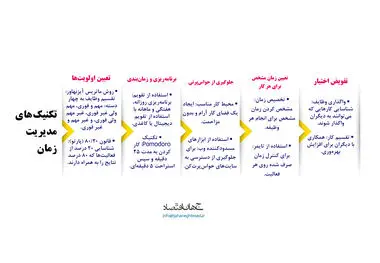 تکنیک‌های
مدیریت
زمان
تعیین اولویت‌ها
• روش ماتریس آیزنهاور:
تقسیم وظایف به چهار
دسته: مهم و فوری، مهم
ولی غیر فوری، غیر مهم
ولی فوری، و غیر مهم و
غیر فوری.
• قانون ۸۰/۲۰ (پارتو):
شناسایی ۲۰ درصد از
فعالیت‌ها که ۸۰ درصد
نتایج را به همراه دارند.
برنامه‌ریزی و زمان‌بندی
• استفاده از تقویم:
برنامه‌ریزی روزانه،
هفتگی و ماهانه با
استفاده از تقویم
دیجیتال یا کاغذی.
• تکنیک
Pomodoro کار
کردن به مدت ۲۵
دقیقه و سپس
استراحت ۵ دقیقه‌ای.
جلوگیری از حواس‌پرتی
• محیط کار مناسب: ایجاد
یک فضای کار آرام و بدون
مزاحمت.
• استفاده از ابزارهای
مسدودکننده وب: برای
جلوگیری از دسترسی به
سایت‌های حواس‌پرت‌کن.
تعیین زمان مشخص
برای هر کار
• تخصیص زمان:
مشخص کردن زمان
مشخص برای انجام هر
وظیفه.
• استفاده از تایمر:
برای کنترل زمان
صرف شده روی هر
فعالیت.
تفویض اختیار
• واگذاری وظایف:
شناسایی کارهایی که
می‌توانند به دیگران
واگذار شوند.
• تقسیم کار: همکاری
با دیگران برای افزایش
بهره‌وری.